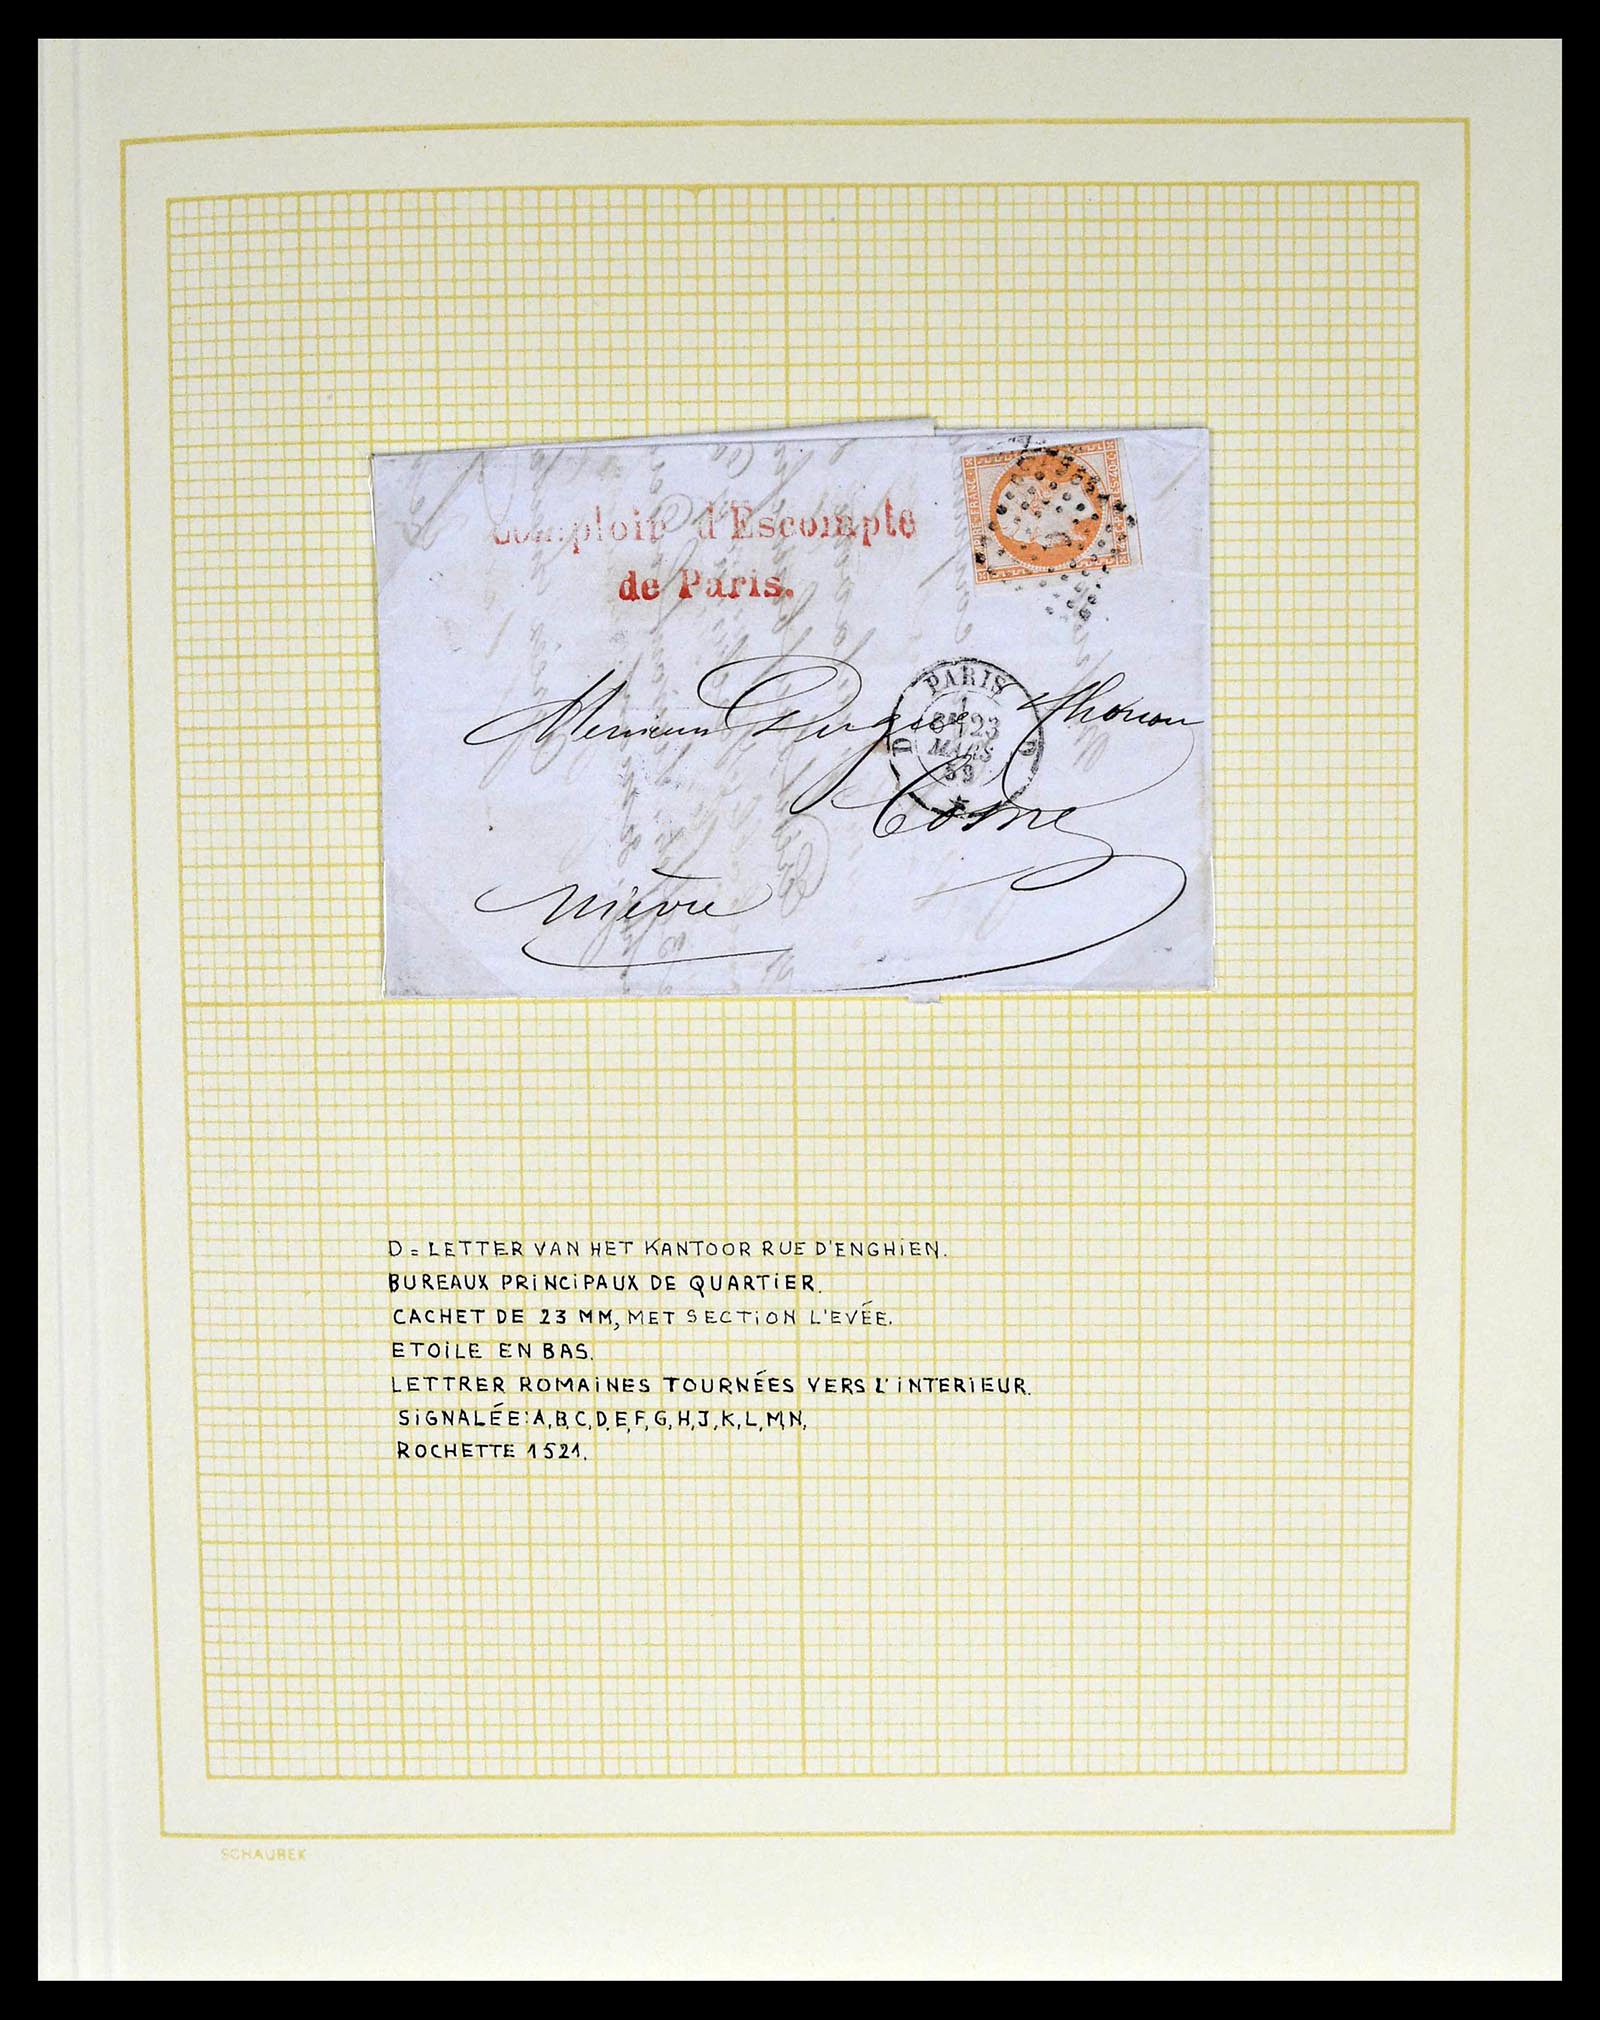 Comptoir d'Escompte
de Paris.
EMPIRE FRANC
40 C. POSTES 40 C.
PARIS
23
MARS
59
D D
Monsieur
Cosne
Nièvre
D = LETTER VAN HET KANTOOR RUE D'ENGHIEN.
BUREAUX PRINCIPAUX DE QUARTIER.
CACHET DE 23 MM, MET SECTION L'EVÉE.
ETOILE EN BAS.
LETTRER ROMAINES TOURNÉES VERS L'INTERIEUR.
SIGNALÉE: A, B, C, D, E, F, G, H, J, K, L, M, N,
ROCHETTE 1521.
SCHAUBEK